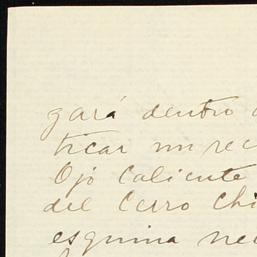 gará dentro
ticar un rec
Ojo Caliente
del Cerro Chi
esquina